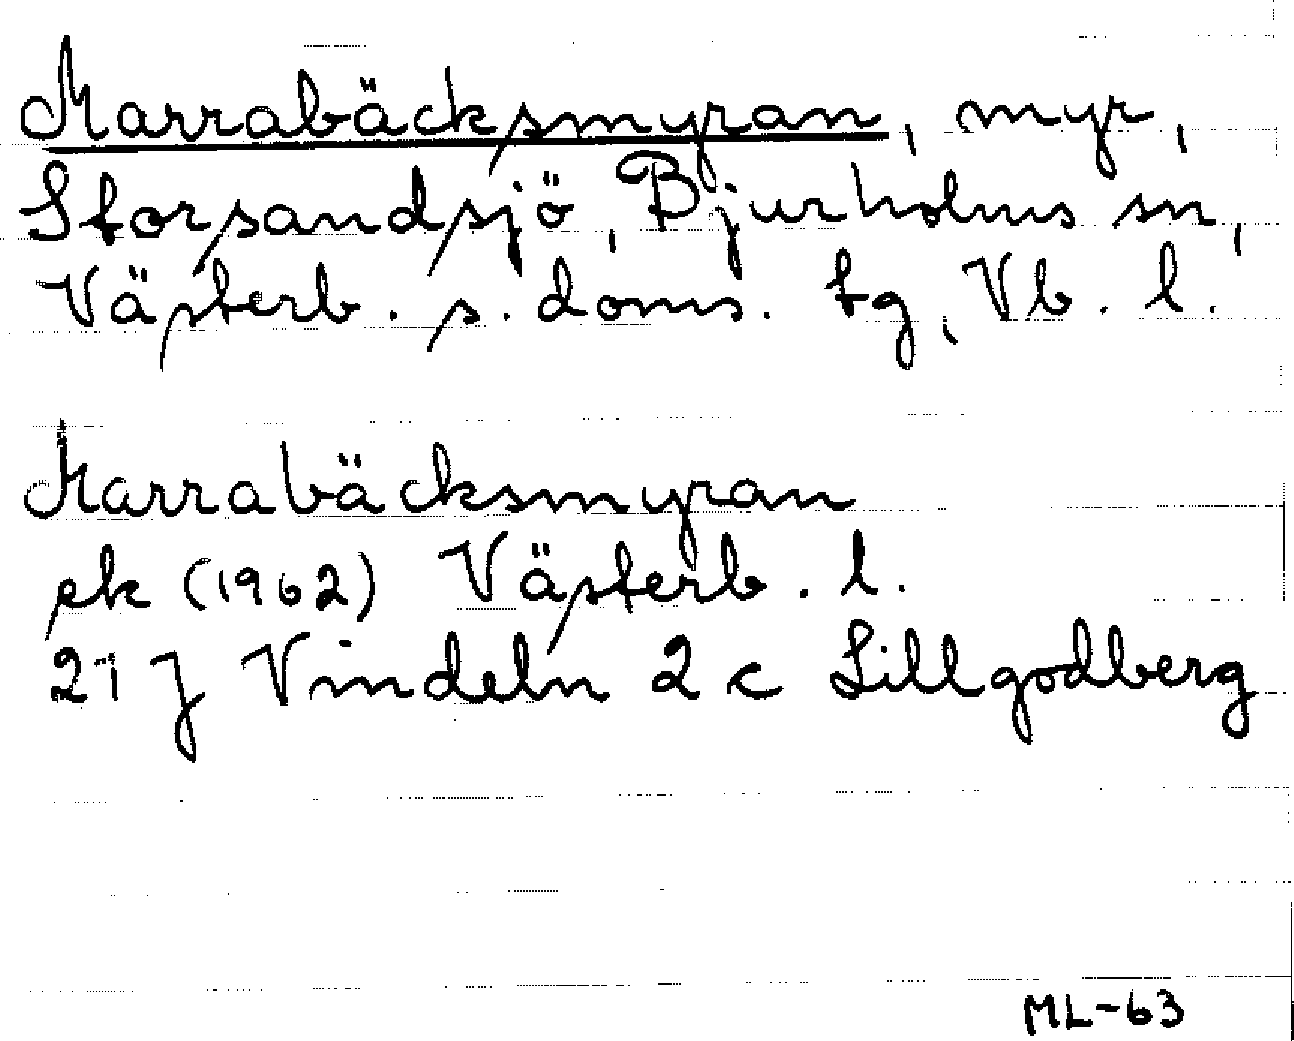 Marrabäcksmyran, myr,
Storsandsjö, Bjurholms sn,
Västerb. s. doms. tg, Vb. l.
Marrabäcksmyran
ek (1962) Västerb. l.
21 J Vindeln 2 c Lillgodberg
ML-63